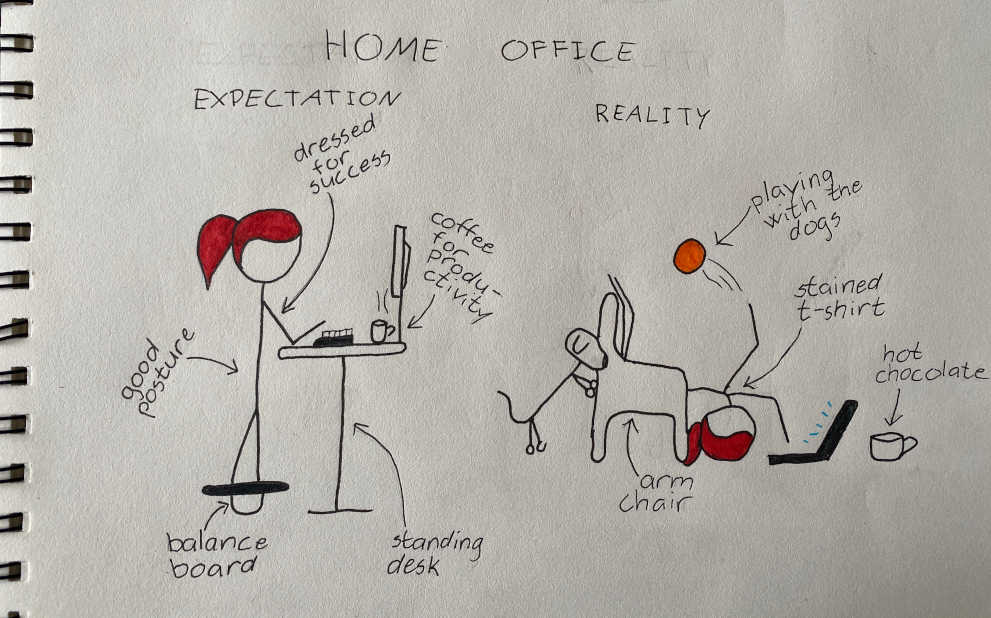 HOME OFFICE
EXPECTATION
dressed
for
success
coffee
for
produ-
ctivity
good
posture
balance
board
standing
desk
REALITY
playing
with the
dogs
stained
t-shirt
hot
chocolate
arm
chair